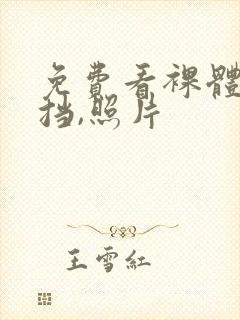 免費看裸體
挡,照片
王雪紅